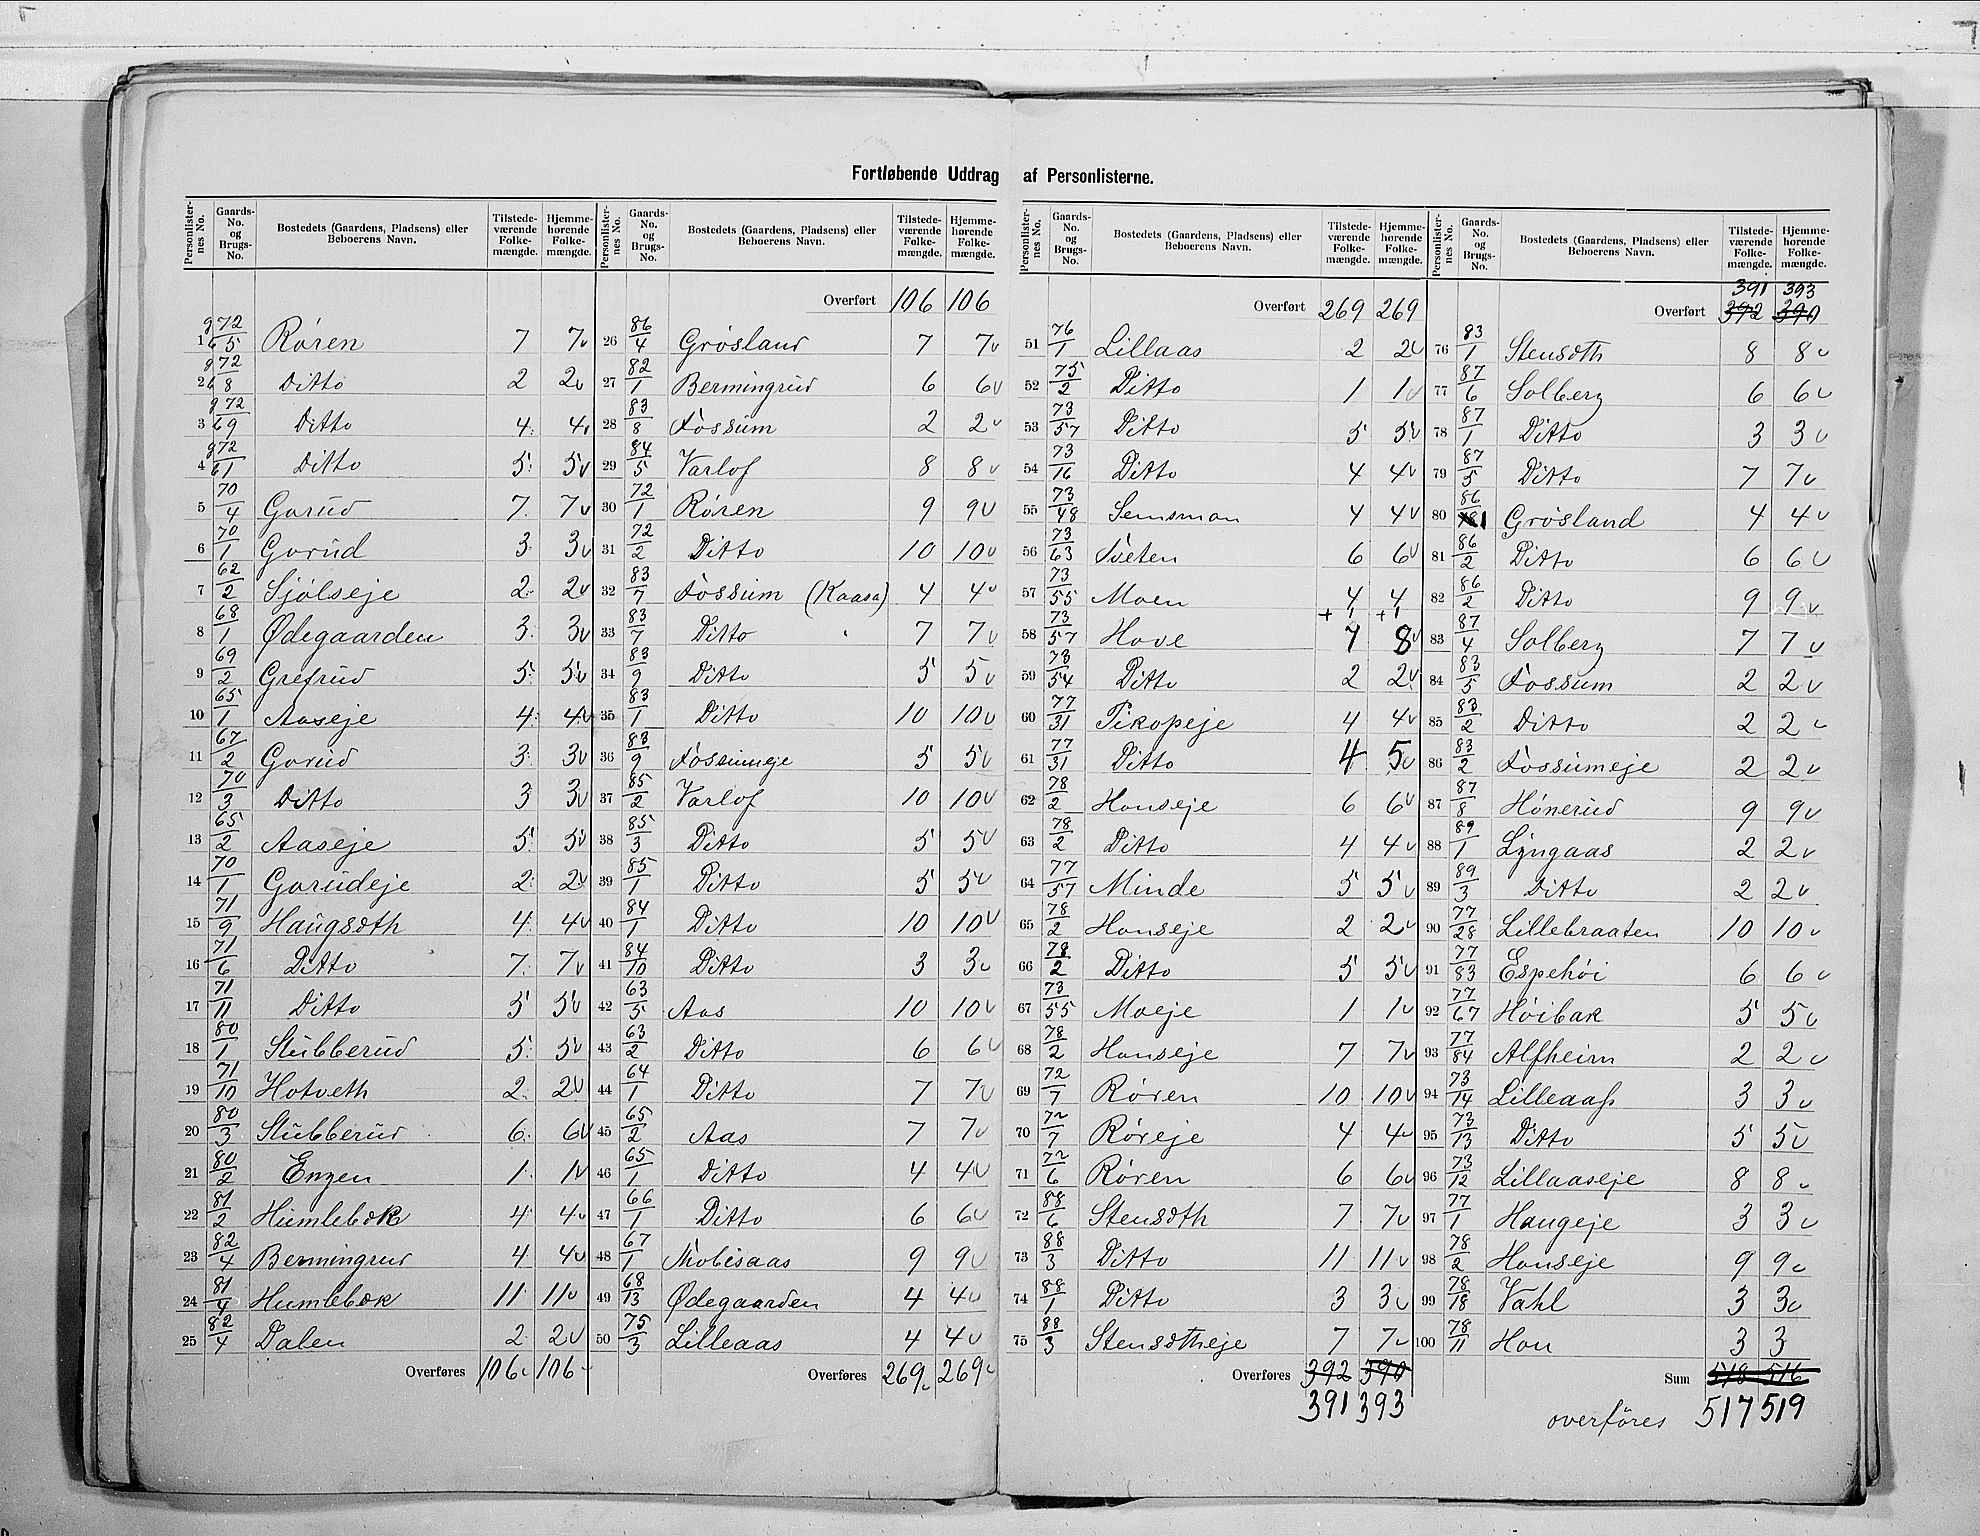 Fortløbende Uddrag af Personlisterne.
Personlister- nes No. | Gaards- No. og Brugs- No. | Bostedets (Gaardens, Pladsens) eller Beboerens Navn. | Tilstede- værende Folke- mængde. | Hjemme- hørende Folke- mængde.
1 g 72/5 Røren 7 7
2 g 72/8 Ditto 2 2
3 g 72/9 Ditto 4 4
4 g 72/1 Ditto 5 5
5 70/4 Gorud 7 7
6 70/1 Gorud 3 3
7 62/2 Sjølseje 2 2
8 68/1 Ødegaarden 3 3
9 69/2 Grefrud 5 5
10 65/1 Aaseje 4 4
11 67/2 Gorud 3 3
12 70/3 Ditto 3 3
13 65/2 Aaseje 5 5
14 70/1 Gorudeje 2 2
15 71/9 Haugsæth 4 4
16 71/6 Ditto 7 7
17 71/11 Ditto 5 5
18 80/1 Stubberud 5 5
19 71/10 Hotveth 2 2
20 80/3 Stubberud 6 6
21 80/2 Engen 1 1
22 81/2 Humlebæk 4 4
23 82/4 Bermingrud 4 4
24 81/4 Humlebæk 11 11
25 82/4 Dalen 2 2
Overføres 106 106
Personlister- nes No. | Gaards- No. og Brugs- No. | Bostedets (Gaardens, Pladsens) eller Beboerens Navn. | Tilstede- værende Folke- mængde. | Hjemme- hørende Folke- mængde.
Overført 106 106
26 86/4 Grøsland 7 7
27 82/1 Bermingrud 6 6
28 83/8 Fossum 2 2
29 84/5 Varlof 8 8
30 72/1 Røren 9 9
31 72/2 Ditto 10 10
32 83/7 Fossum (Kaasa) 4 4
33 83/7 Ditto 7 7
34 83/9 Ditto 5 5
35 83/1 Ditto 10 10
36 83/9 Fossumeje 5 5
37 85/2 Varlof 10 10
38 85/3 Ditto 5 5
39 85/1 Ditto 5 5
40 84/1 Ditto 10 10
41 84/10 Ditto 3 3
42 63/5 Aas 10 10
43 63/2 Ditto 6 6
44 64/1 Ditto 7 7
45 65/2 Aas 7 7
46 65/1 Ditto 4 4
47 66/1 Ditto 6 6
48 67/1 9 9
49 68/13 Ødegaarden 4 4
50 75/3 Lilleaas 4 4
Overføres 269 269
Personlister- nes No. | Gaards- No. og Brugs- No. | Bostedets (Gaardens, Pladsens) eller Beboerens Navn. | Tilstede- værende Folke- mængde. | Hjemme- hørende Folke- mængde.
Overført 269 269
51 76/1 Lillaas 2 2
52 75/2 Ditto 1 1
53 73/57 Ditto 5 5
54 73/16 Ditto 4 4
55 73/48 Semsmoen 4 4
56 73/63 Tveten 6 6
57 73/55 Moen 4 4
+1 +1
58 73/57 Hove 7 8
59 73/54 Ditto 2 2
60 77/31 Pikopeje 4 4
61 77/31 Ditto 4 5
62 78/2 Honseje 6 6
63 78/2 Ditto 4 4
64 77/57 Minde 5 5
65 78/2 Honseje 2 2
66 78/2 Ditto 5 5
67 73/55 Moeje 1 1
68 78/2 Honseje 7 7
69 72/7 Røren 10 10
70 72/7 Røreje 4 4
71 72/6 Røren 6 6
72 88/6 Stensæth 7 7
73 88/3 Ditto 11 11
74 88/1 Ditto 3 3
75 88/3 Stensætheje 7 7
Overføres 392 390
391 393
Personlister- nes No. | Gaards- No. og Brugs- No. | Bostedets (Gaardens, Pladsens) eller Beboerens Navn. | Tilstede- værende Folke- mængde. | Hjemme- hørende Folke- mængde.
391 393
Overført 392 390
76 83/1 Stensæth 8 8
77 87/6 Solberg 6 6
78 87/1 Ditto 3 3
79 87/5 Ditto 7 7
80 86/1 Grøsland 4 4
81 86/2 Ditto 6 6
82 86/2 Ditto 9 9
83 87/4 Solberg 7 7
84 83/5 Fossum 2 2
85 83/2 Ditto 2 2
86 83/2 Fossumeje 2 2
87 87/8 Hønerud 9 9
88 89/1 Lyngaas 2 2
89 89/3 Ditto 2 2
90 77/28 Lillebraaten 10 10
91 77/83 Espehøi 6 6
92 77/67 Høibak 5 5
93 77/84 Alfheim 2 2
94 73/14 Lilleaas 3 3
95 73/13 Ditto 5 5
96 73/12 Lillaaseje 8 8
97 77/1 Haugeje 3 3
98 78/2 Honseje 9 9
99 78/18 Vahl 3 3
100 78/11 Hon 3 3
Sum 518 516
overføres 517 519